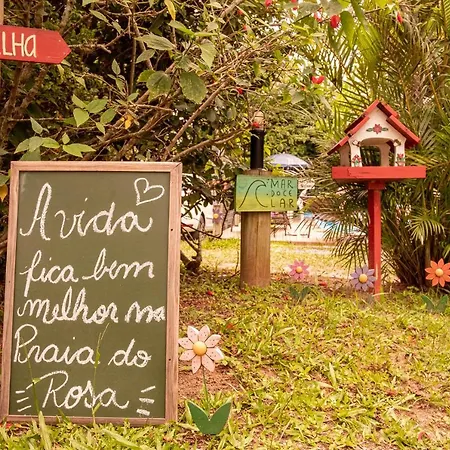 LHA
A vida
fica bem
melhor na
Praia do
Rosa
MAR
DOCE
LAR